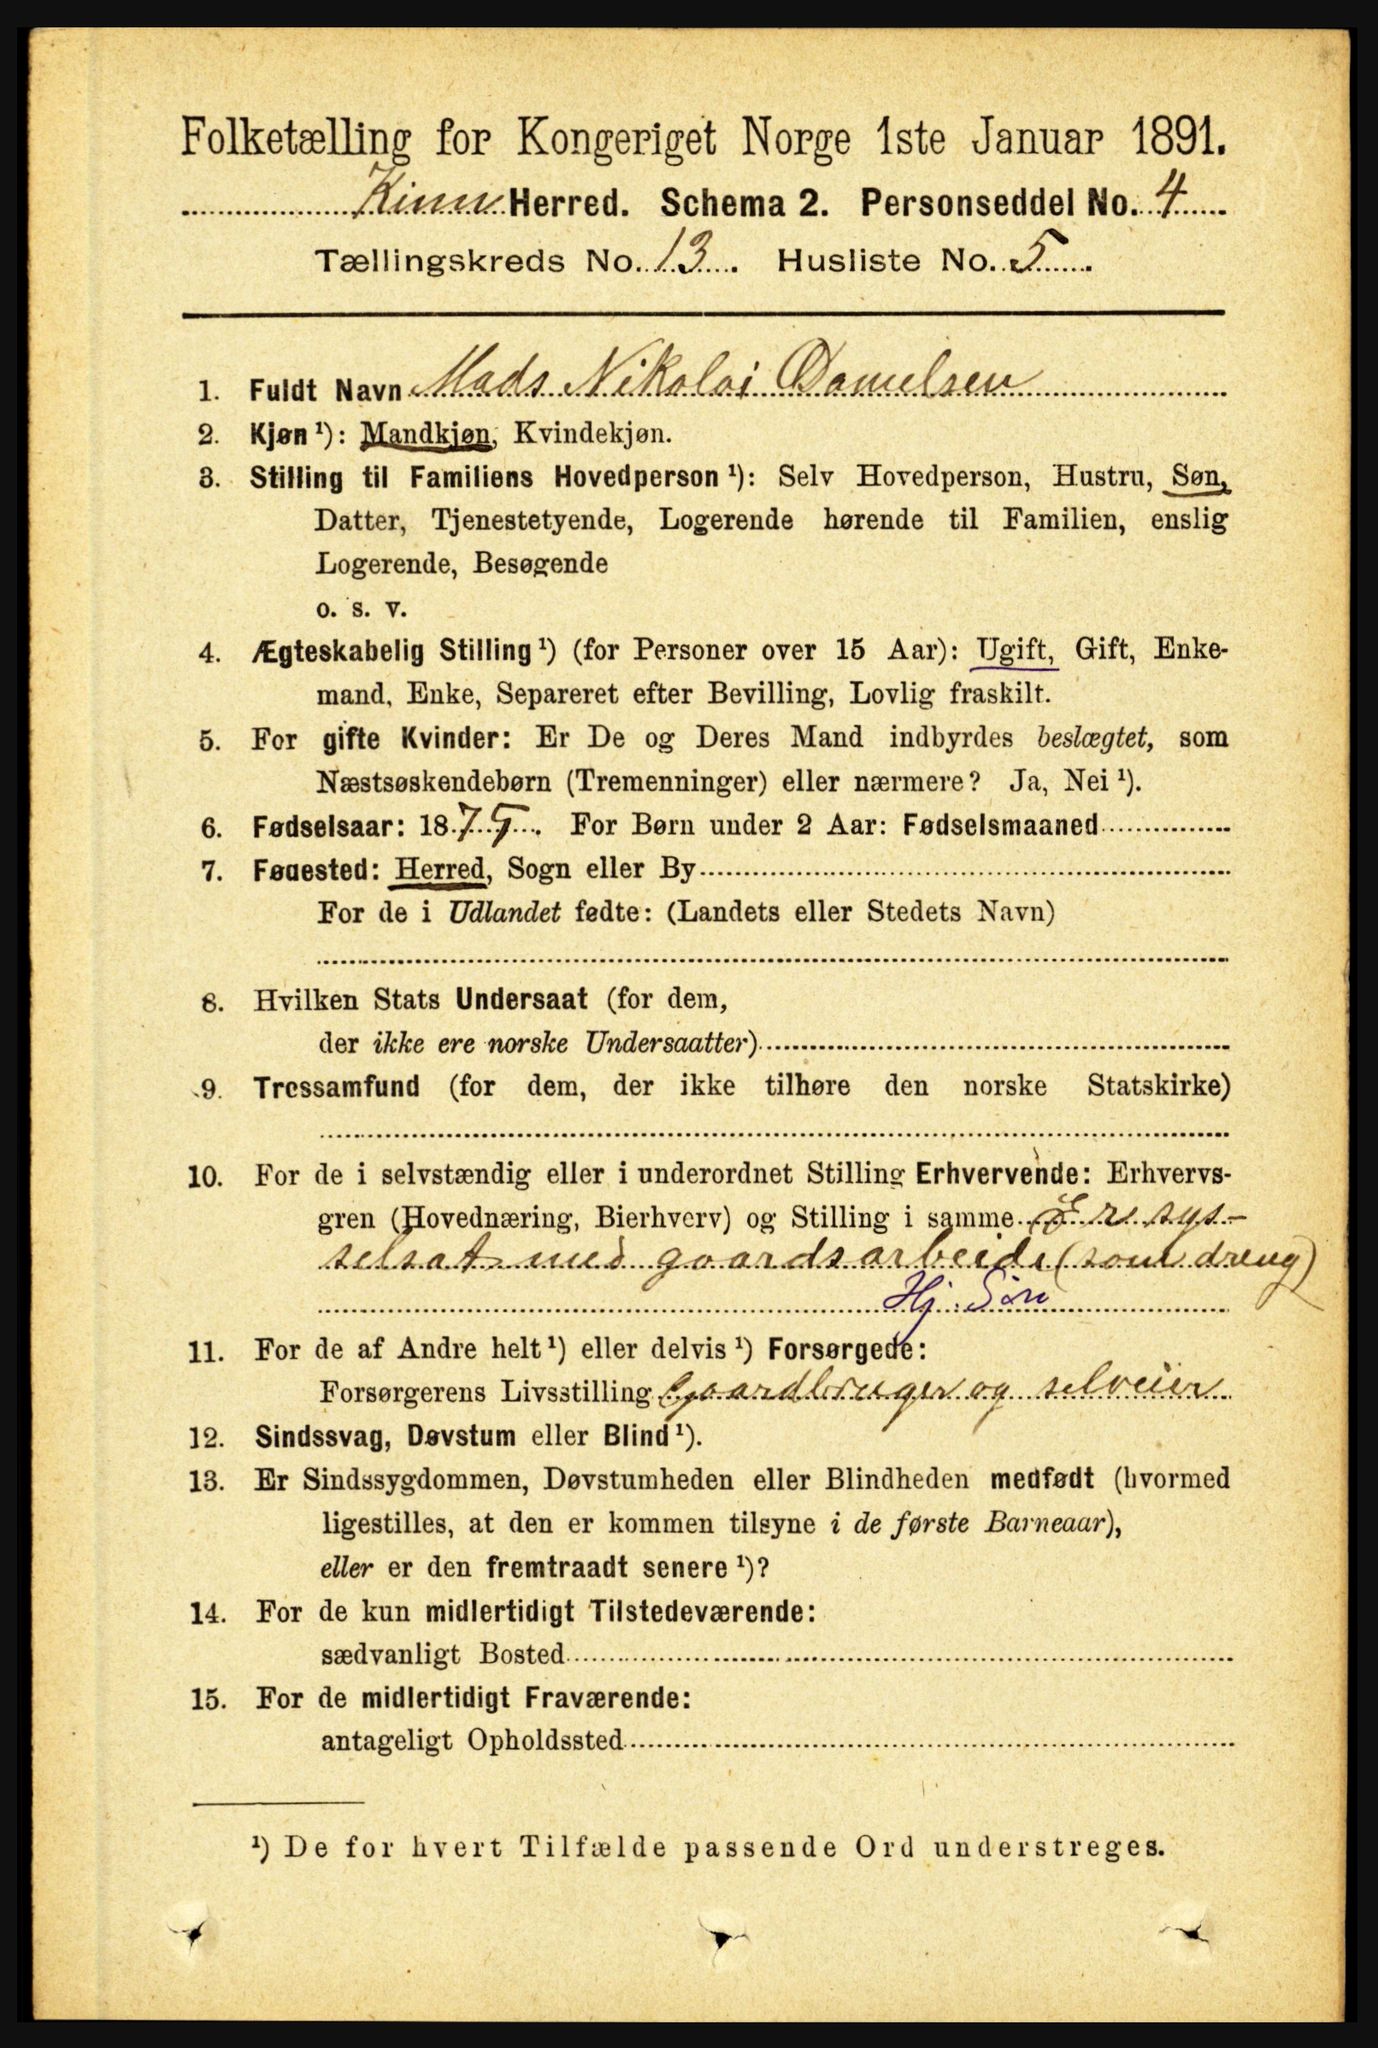 Folketælling for Kongeriget Norge 1ste Januar 1891.
Kinn Herred. Schema 2. Personseddel No. 4
Tællingskreds No. 13. Husliste No. 5
1. Fuldt Navn Mads Nikolai Danielsen
2. Kjøn¹): Mandkjøn, Kvindekjøn.
3. Stilling til Familiens Hovedperson¹): Selv Hovedperson, Hustru, Søn,
Datter, Tjenestetyende, Logerende hørende til Familien, enslig
Logerende, Besøgende
o. s. v.
4. Ægteskabelig Stilling¹) (for Personer over 15 Aar): Ugift, Gift, Enke-
mand, Enke, Separeret efter Bevilling, Lovlig fraskilt.
5. For gifte Kvinder: Er De og Deres Mand indbyrdes beslægtet, som
Næstsøskendebørn (Tremenninger) eller nærmere? Ja, Nei¹).
6. Fødselsaar: 1875. For Børn under 2 Aar: Fødselsmaaned
7. Føuested: Herred, Sogn eller By
For de i Udlandet fødte: (Landets eller Stedets Navn)
8. Hvilken Stats Undersaat (for dem,
der ikke ere norske Undersaatter)
9. Trossamfund (for dem, der ikke tilhøre den norske Statskirke)
10. For de i selvstændig eller i underordnet Stilling Erhvervende: Erhvervs-
gren (Hovednæring, Bierhverv) og Stilling i samme Er sys-
selsat med gaardsarbeide (som dreng)
Hj. Søn
11. For de af Andre helt¹) eller delvis¹) Forsørgede:
Forsørgerens Livsstilling Gaardbruger og selveier
12. Sindssvag, Døvstum eller Blind¹).
13. Er Sindssygdommen, Døvstumheden eller Blindheden medfødt (hvormed
ligestilles, at den er kommen tilsyne i de første Barneaar),
eller er den fremtraadt senere¹)?
14. For de kun midlertidigt Tilstedeværende:
sædvanligt Bosted
15. For de midlertidigt Fraværende:
antageligt Opholdssted
¹) De for hvert Tilfælde passende Ord understreges.